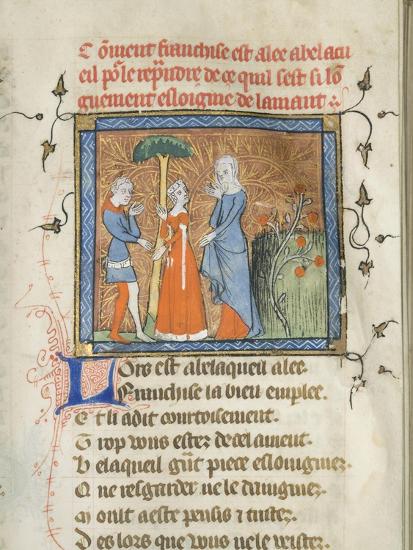 Cõment franchise est alee a belacu
eil por le reprendre de ce quil sest si lõ
guement esloigne de lamant
Lors est a belaqueil alee
Franchise la bien emplee
Et li a dit courtoisement
Trop vous estez de cel ament
Belaqueil grant piece eslongniez
Que resgarder ne le daingniez
Moult a este pensis et tristez
Des lors que vous ne le veistez